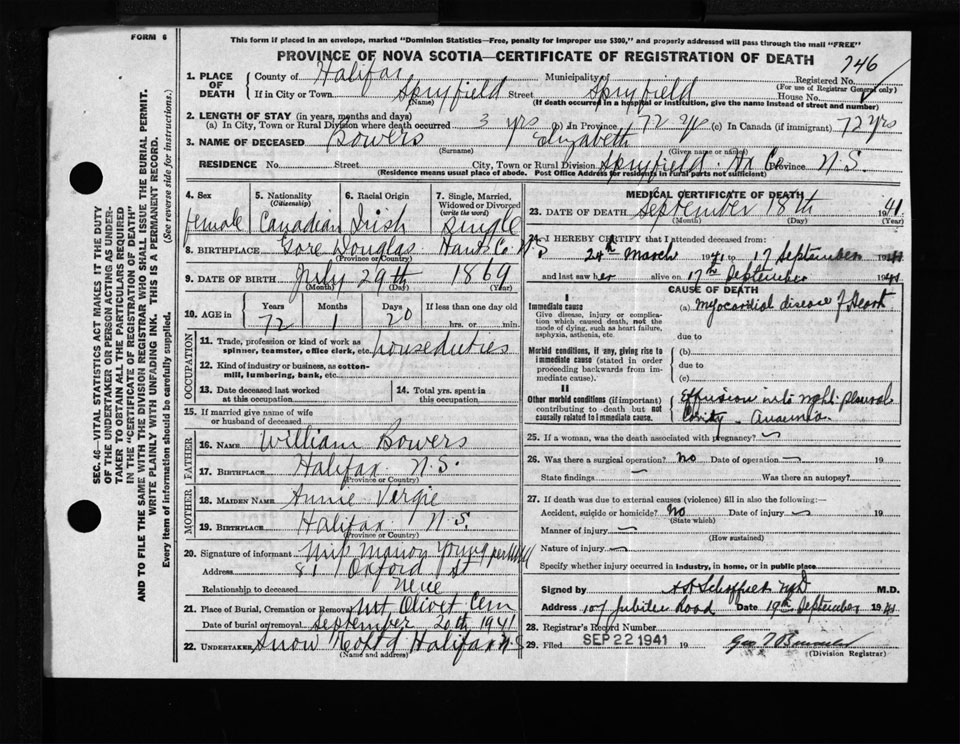 FORM 6
This form if placed in an envelope, marked "Dominion Statistics—Free, penalty for improper use $300," and properly addressed will pass through the mail "FREE"
PROVINCE OF NOVA SCOTIA—CERTIFICATE OF REGISTRATION OF DEATH
746
SEC. 46—VITAL STATISTICS ACT MAKES IT THE DUTY
OF THE UNDERTAKER OR PERSON ACTING AS UNDER-
TAKER TO OBTAIN ALL THE PARTICULARS REQUIRED
IN THE "CERTIFICATE OF REGISTRATION OF DEATH"
AND TO FILE THE SAME WITH THE DIVISION REGISTRAR WHO SHALL ISSUE THE BURIAL PERMIT.
WRITE PLAINLY WITH UNFADING INK. THIS IS A PERMANENT RECORD.
Every item of information should be carefully supplied. (See reverse side for instructions.)
1. PLACE OF DEATH County of Halifax Municipality of Registered No.
(For use of Registrar General only)
If in City or Town Spryfield Street Spryfield House No.
(Name) (If death occurred in a hospital or institution, give the name instead of street and number)
2. LENGTH OF STAY (in years, months and days)
(a) In City, Town or Rural Division where death occurred 3 yrs (b) In Province 72 yrs (c) In Canada (if immigrant) 72 yrs
3. NAME OF DECEASED Bowers Elizabeth
(Surname) (Given name or names)
RESIDENCE No. Street City, Town or Rural Division Spryfield Hx Co Province N.S.
(Residence means usual place of abode. Post Office Address for residents in rural parts not sufficient)
4. Sex 5. Nationality (Citizenship) 6. Racial Origin 7. Single, Married, Widowed or Divorced (write the word)
Female Canadian Irish Single
8. BIRTHPLACE Gore Douglas Hants Co. N.S
(Province or Country)
9. DATE OF BIRTH July 29th 1869
(Month) (Day) (Year)
10. AGE in Years Months Days If less than one day old
72 1 20 hrs. or min.
OCCUPATION
11. Trade, profession or kind of work as spinner, teamster, office clerk, etc. house duties
12. Kind of industry or business, as cotton-mill, lumbering, bank, etc.
13. Date deceased last worked at this occupation 14. Total yrs. spent in this occupation
15. If married give name of wife or husband of deceased
FATHER
16. NAME William Bowers
17. BIRTHPLACE Halifax N.S.
(Province or Country)
MOTHER
18. MAIDEN NAME Annie Vergie
19. BIRTHPLACE Halifax N.S.
(Province or Country)
20. Signature of informant Miss Marion Young per
Address 81 Oxford St
Relationship to deceased Neice
21. Place of Burial, Cremation or Removal Mt Olivet Cem
Date of burial or removal September 20th 1941
22. UNDERTAKER Snow & Co Ltd Halifax N.S
(Name and address)
MEDICAL CERTIFICATE OF DEATH
23. DATE OF DEATH September 18th 1941
(Month) (Day)
24. I HEREBY CERTIFY that I attended deceased from:
24th March 1941 to 17 September 1941
and last saw her alive on 17th September 1941
CAUSE OF DEATH
I
Immediate cause (a) Myocardial disease of Heart
Give disease, injury or complication which caused death, not the mode of dying, such as heart failure, asphyxia, asthenia, etc.
due to
Morbid conditions, if any, giving rise to immediate cause (stated in order proceeding backwards from immediate cause). (b)
due to
(c)
II
Other morbid conditions (if important) contributing to death but not causally related to immediate cause. Effusion into right pleural
Cavity - Anaemia
25. If a woman, was the death associated with pregnancy?
26. Was there a surgical operation? No Date of operation 19
State findings Was there an autopsy?
27. If death was due to external causes (violence) fill in also the following:—
Accident, suicide or homicide? No Date of injury 19
(State which)
Manner of injury
(How sustained)
Nature of injury
Specify whether injury occurred in industry, in home, or in public place
Signed by M.D.
Address 107 Jubilee Road Date 19th September 1941
28. Registrar's Record Number
29. Filed SEP 22 1941 19
(Division Registrar)